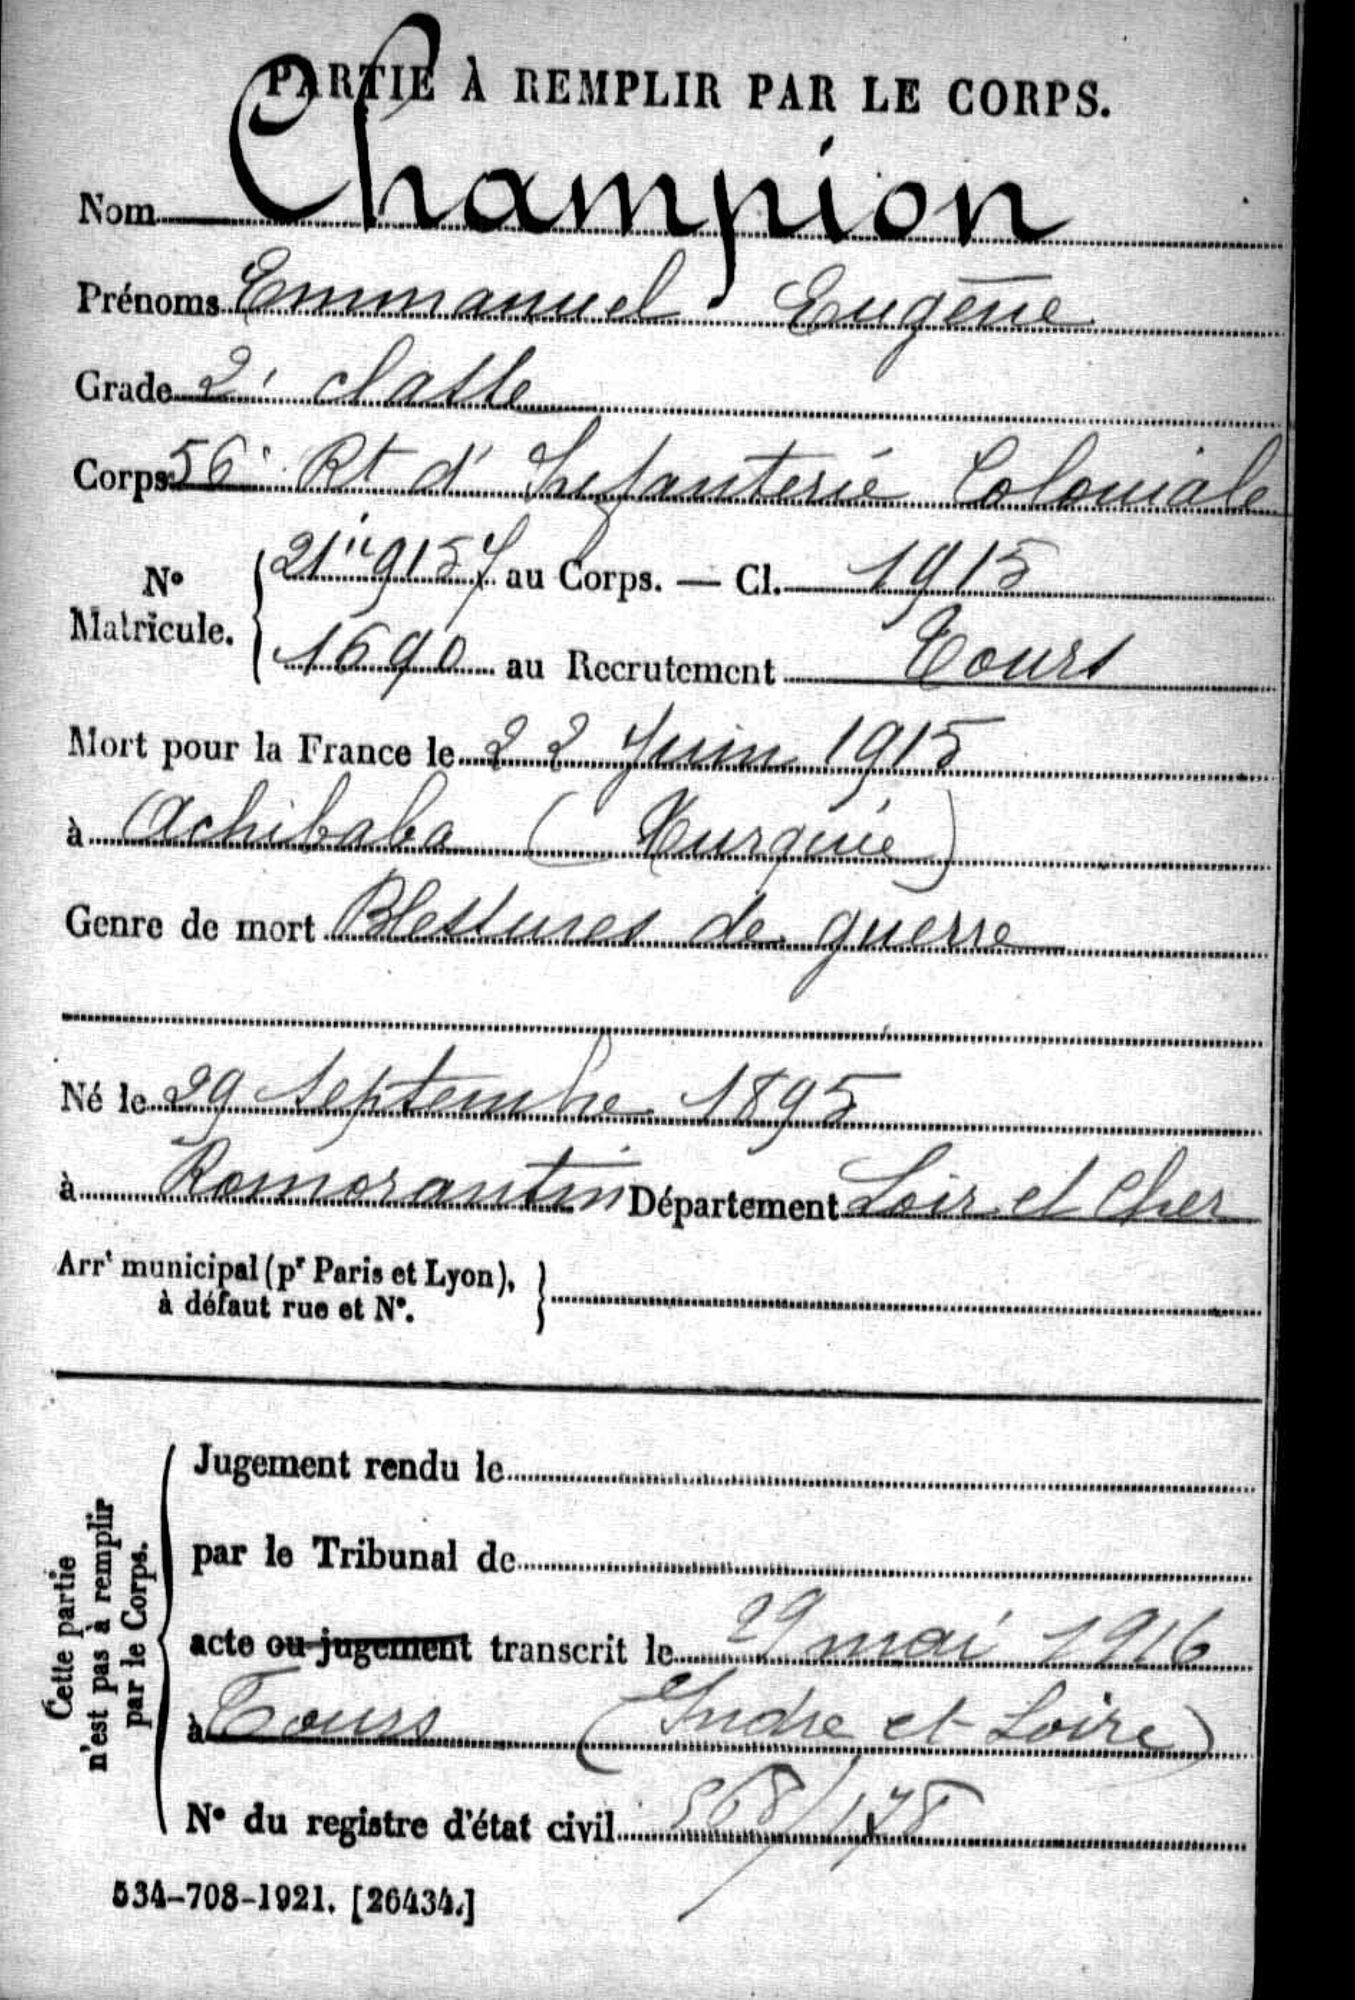 PARTIE À REMPLIR PAR LE CORPS.
Nom Champion
Prénoms Emmanuel Eugène
Grade 2e classe
Corps 56e Rt d'Infanterie Coloniale
No Matricule. { 21" 9157 au Corps. — Cl. 1915
1690 au Recrutement Tours
Mort pour la France le 22 Juin 1915
à Achibaba (Turquie)
Genre de mort Blessures de guerre
Né le 29 septembre 1895
à Romorantin Département Loir et Cher
Arrt municipal (pr Paris et Lyon), }
à défaut rue et No.
Cette partie
n'est pas à remplir
par le Corps.
Jugement rendu le
par le Tribunal de
acte ou jugement transcrit le 29 mai 1916
à Tours (Indre et Loire)
No du registre d'état civil 868/178
534-708-1921. [26434.]